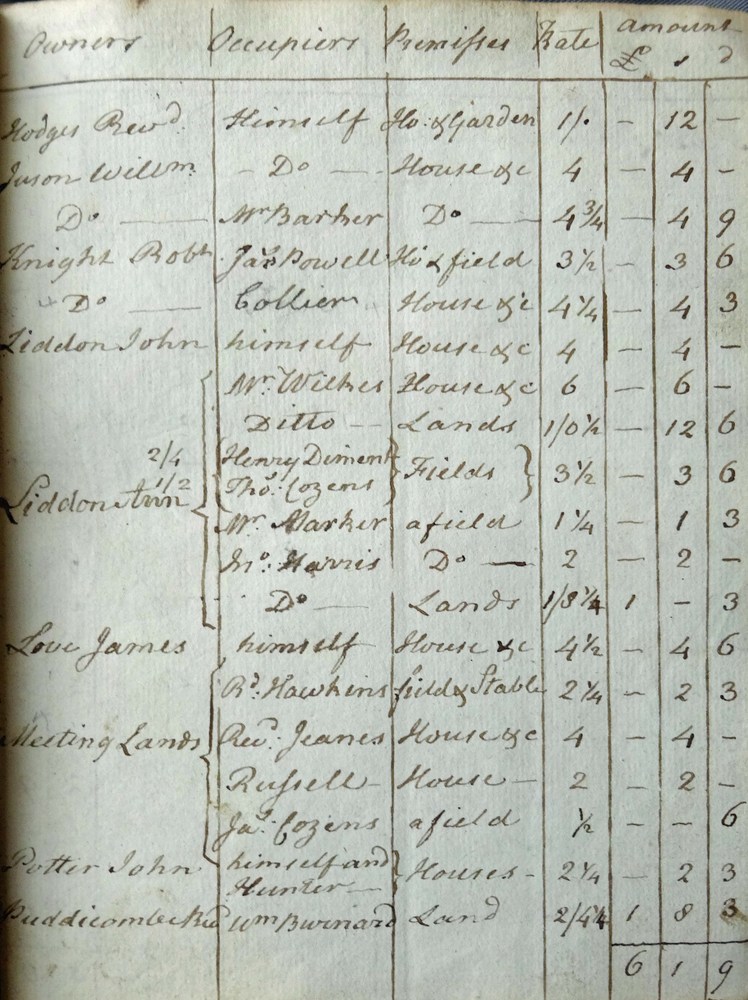 Owners Occupiers Premisses Rate amount
£ s d
Hodges Revd. Himself Ho. & Garden 1/. — 12 —
Juson Willm. — Do — House &c 4 — 4 —
Do — Mr Barker Do — 4¾ — 4 9
Knight Robt. Jas. Powell Ho & field 3½ — 3 6
Do — Collier House &c 4¼ — 4 3
Liddon John himself House &c 4 — 4 —
Mr. Wilkes House &c 6 — 6 —
Ditto — Lands 1/0½ — 12 6
2/4 Henry Diment
Fields 3½ — 3 6
1/2 Thos. Cozens
Liddon Ann
Mr. Marker a field 1¼ — 1 3
Jno. Harris Do — 2 — 2 —
Do — Lands 1/8¼ 1 — 3
Love James himself House &c 4½ — 4 6
Rd. Hawkins field & Stable 2¼ — 2 3
Meeting Lands Revd. Jeanes House &c 4 — 4 —
Russell — House — 2 — 2 —
Jas. Cozens a field ½ — — 6
Potter John himself and
Houses - 2¼ — 2 3
Hunter —
Puddicombe Wm Burnard Land 2/4¼ 1 8 3
6 1 9